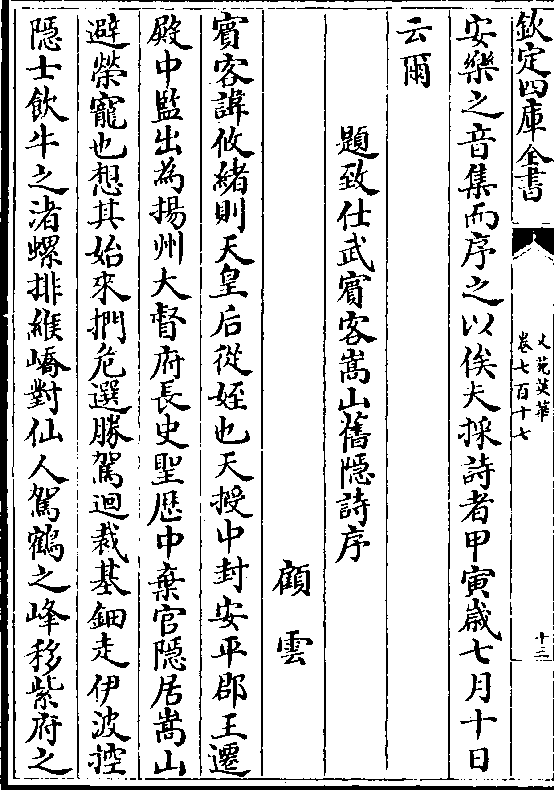 欽定四庫全書
文苑英華
卷七百十七
十三
安樂之音集而序之以俟夫採詩者甲寅歲七月十日
云爾
題致仕武賓客嵩山舊隱詩序
顧雲
賓客諱攸緒則天皇后從姪也天授中封安平郡王遷
殿中監出為揚州大督府長史聖厯中棄官隱居嵩山
避榮寵也想其始來捫危選勝駕迴裁基鈿走伊波控
隱士飲牛之渚螺排緱嶠對仙人駕鶴之峰移紫府之